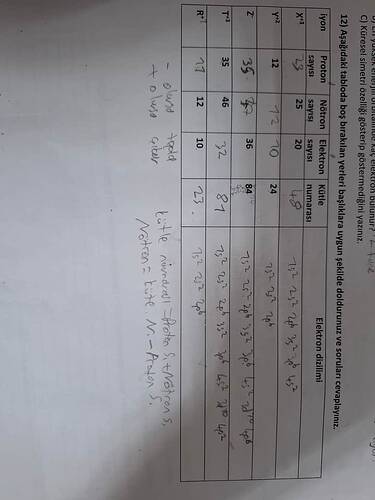 C) Küresel simetri özelliği gösterip göstermediğini yazınız.
12) Aşağıdaki tabloda boş bırakılan yerleri başlıklara uygun şekilde doldurunuz ve soruları cevaplayınız.
İyon Proton sayısı Nötron sayısı Elektron sayısı Kütle numarası Elektron dizilimi
X+3 23 25 20 48 1s² 2s² 2p⁶ 3s² 3p⁶ 4s²
Y+2 12 12 10 24 1s² 2s² 2p⁶
Z 36 84 1s² 2s² 2p⁶ 3s² 3p⁶ 4s² 3d¹⁰ 4p⁶
T+3 35 46 32 81 1s² 2s² 2p⁶ 3s² 3p⁶ 4s² 3d¹⁰ 4p²
R+1 11 12 10 23 1s² 2s² 2p⁶
- olursa topla
+ olursa çıkar
kütle numarası = Proton S. + Nötron S.
Nötron = kütle N. - Proton S.